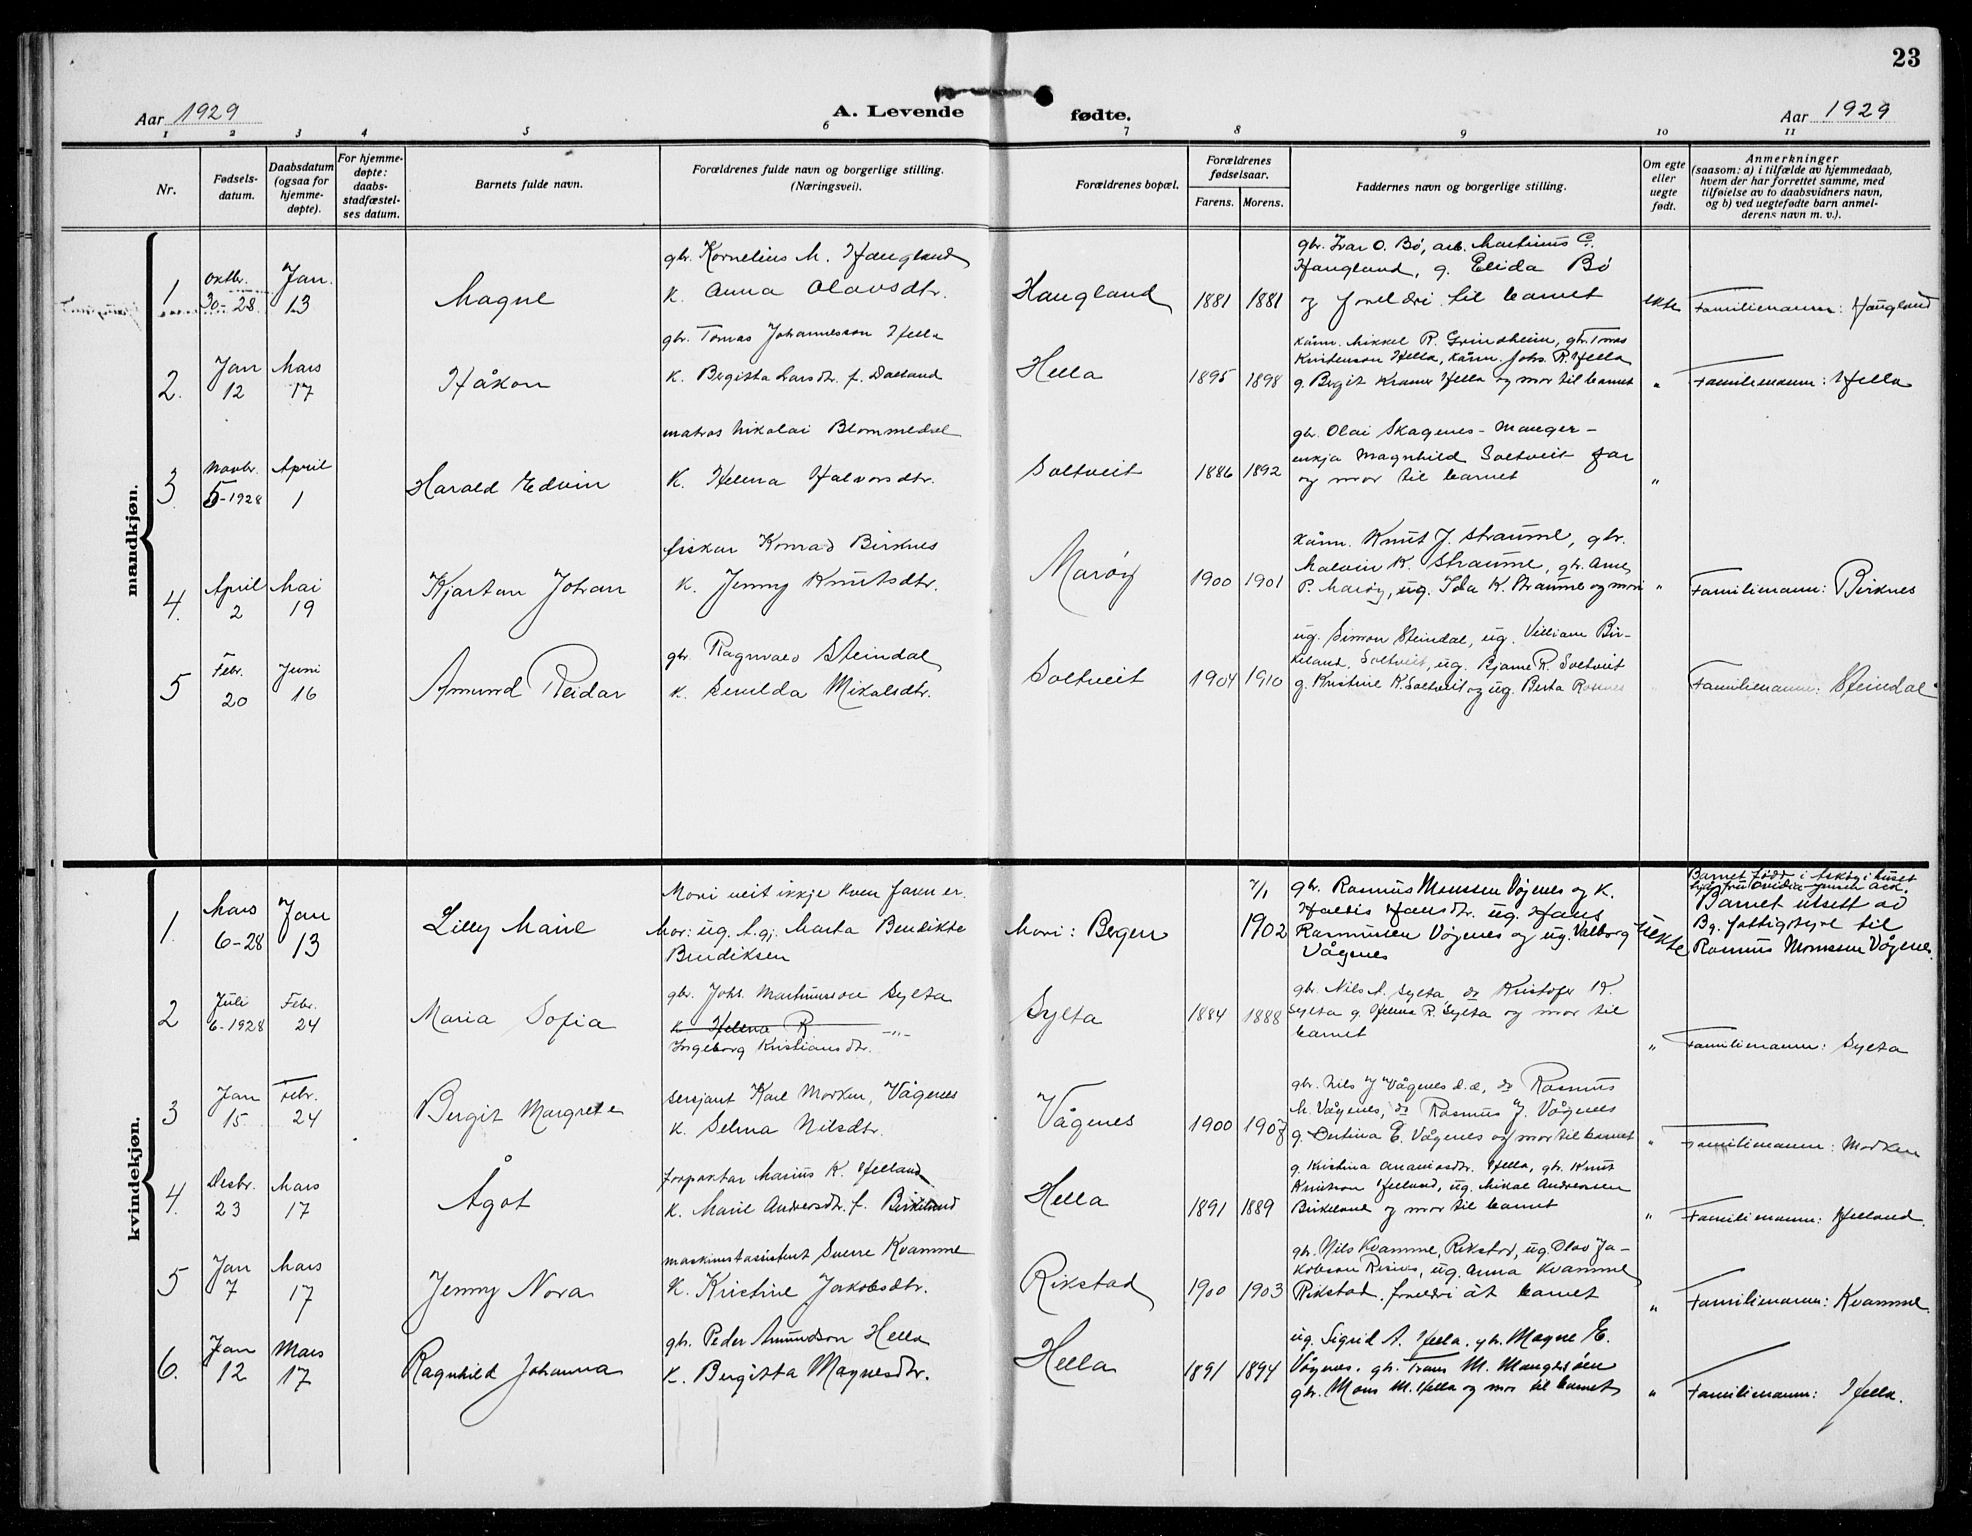 23
Aar 1929
A. Levende fødte.
Aar 1929
1 2 3 4 5 6 7 8 9 10 11
Nr.
Fødsels-
datum.
Daabsdatum
(ogsaa for
hjemme-
døpte).
For hjemme-
døpte:
daabs-
stadfæstel-
ses datum.
Barnets fulde navn.
Forældrenes fulde navn og borgerlige stilling.
(Næringsvei).
Forældrenes bopæl.
Forældrenes
fødselsaar.
Farens. Morens.
Faddernes navn og borgerlige stilling.
Om egte
eller
uegte
født.
Anmerkninger
(saasom: a) i tilfælde av hjemmedaab,
hvem der har forrettet samme, med
tilføielse av to daabsvidners navn,
og b) ved uegtefødte barn anmel-
derens navn m. v.).
mandkjøn.
1
oktbr.
30-28
Jan.
13
Magne
gbr. Kornelius M. Haugland
K. Anna Olavsdtr.
Haugland
1881
1881
gbr. Ivar O. Bø, arb. Martinus C.
Haugland, g. Elida Bø
og foreldri til barnet
ekte
Familienamn: Haugland
2.
Jan
12
Mars
17
Håkon
gbr. Tomas Johannesson Hella
K. Bergitta Larsdtr. f. Dalland
Hella
1895
1898
kånn. Mikkel R. Grindheim, gbr. Tomas
Kristenson Hella, kånn. Johs. R. Hella
g. Bergit Kramer Hella og mor til barnet
"
Familienamn: Hella
3
Novbr.
5-1928
April
1
Harald Edvin
matros Nikolai Blommedal
K. Helena Halvorsdtr.
Soltveit
1886
1892
gbr. Olai Skagenes - Manger -
enkja Magnhild Soltveit far
og mor til barnet
"
4.
April
2
Mai
19
Kjartan Johan
fiskar Konrad Birknes
K. Jenny Knutsdtr.
Marøy
1900
1901
kånn. Knut J. Straume, gbr.
Malvin K. Straume, gbr. Arne
P. Marøy, ug. Ida K. Straume og mori
"
Familienamn: Birknes
5
Febr.
20
Juni
16
Amund Reidar
gbr. Ragnvald Steindal
K. Senilda Mikalsdtr.
Soltveit
1904
1910
ug. Simon Steindal, ug. Villiam Bir-
keland, Soltveit, ug. Bjarne R. Soltveit
g. Kristine K. Soltveit og ug. Berta Rosnes
Familienamn: Steindal
kvindekjøn.
1.
Mars
6-28
Jan
13
Lilly Marie
Mori veit ikkje kven faren er.
Mor: ug. t.gj. Marta Bendikte
Bendiksen
Mori: Bergen
7/1
1902
gbr. Rasmus Monssen Vågenes og K.
Haldis Hansdtr. ug. Hans
Rasmussen Vågenes og ug. Valborg
Vågenes
uekte
Barnet født i Askøy i huset
Barnet utsett av
Bg. fattigstyre til
Rasmus Monssen Vågenes.
2
Juli
6-1928
Febr.
24
Maria Sofia
gbr. Johs. Martinusson Sylta
K. Helena R. -"-
Ingeborg Kristiansdtr.
Sylta
1884
1888
gbr. Nils A. Sylta, do Kristofer K.
Sylta g. Helena R. Sylta og mor til
barnet
"
Familienamn: Sylta
3
Jan
15
Febr.
24
Bergit Margrete
sersjant Karl Morken, Vågenes
K. Selma Nilsdtr.
Vågenes
1900
1907
gbr. Nils J. Vågenes d.e., do Rasmus
M. Vågenes, do Rasmus J. Vågenes
g. Dertina E. Vågenes og mor til barnet
"
Familienamn: Morken
4.
Desbr.
23
Mars
17
Ågot
forpaktar Marius K. Helland
K. Marie Andersdtr. f. Birkeland
Hella
1891
1889
g. Kristina Ananiasdtr. Hella, gbr. Knut
Knutson Helland, ug. Mikal Andreassen
Birkeland og mor til barnet
"
Familienamn: Helland.
5
Jan
7
Mars
17
Jenny Nora
maskinistassistent Sverre Kvamme
K. Kristine Jakobsdtr.
Rikstad
1900
1903
gbr. Nils Kvamme, Rikstad, ug. Olav Ja-
kobson Risnes, ug. Anna Kvamme
Rikstad, foreldri åt barnet
"
Familienamn: Kvamme.
6.
Jan
12
Mars
17
Ragnhild Johanna
gbr. Peder Amundson Hella
K. Bergitta Magnesdtr.
Hella
1891
1894
ug. Sigrid A. Hella, gbr. Magne E.
Vågenes, gbr. Trans M. Mangersøen
gbr. Mons M. Hella og mor til barnet
"
Familienamn: Hella.